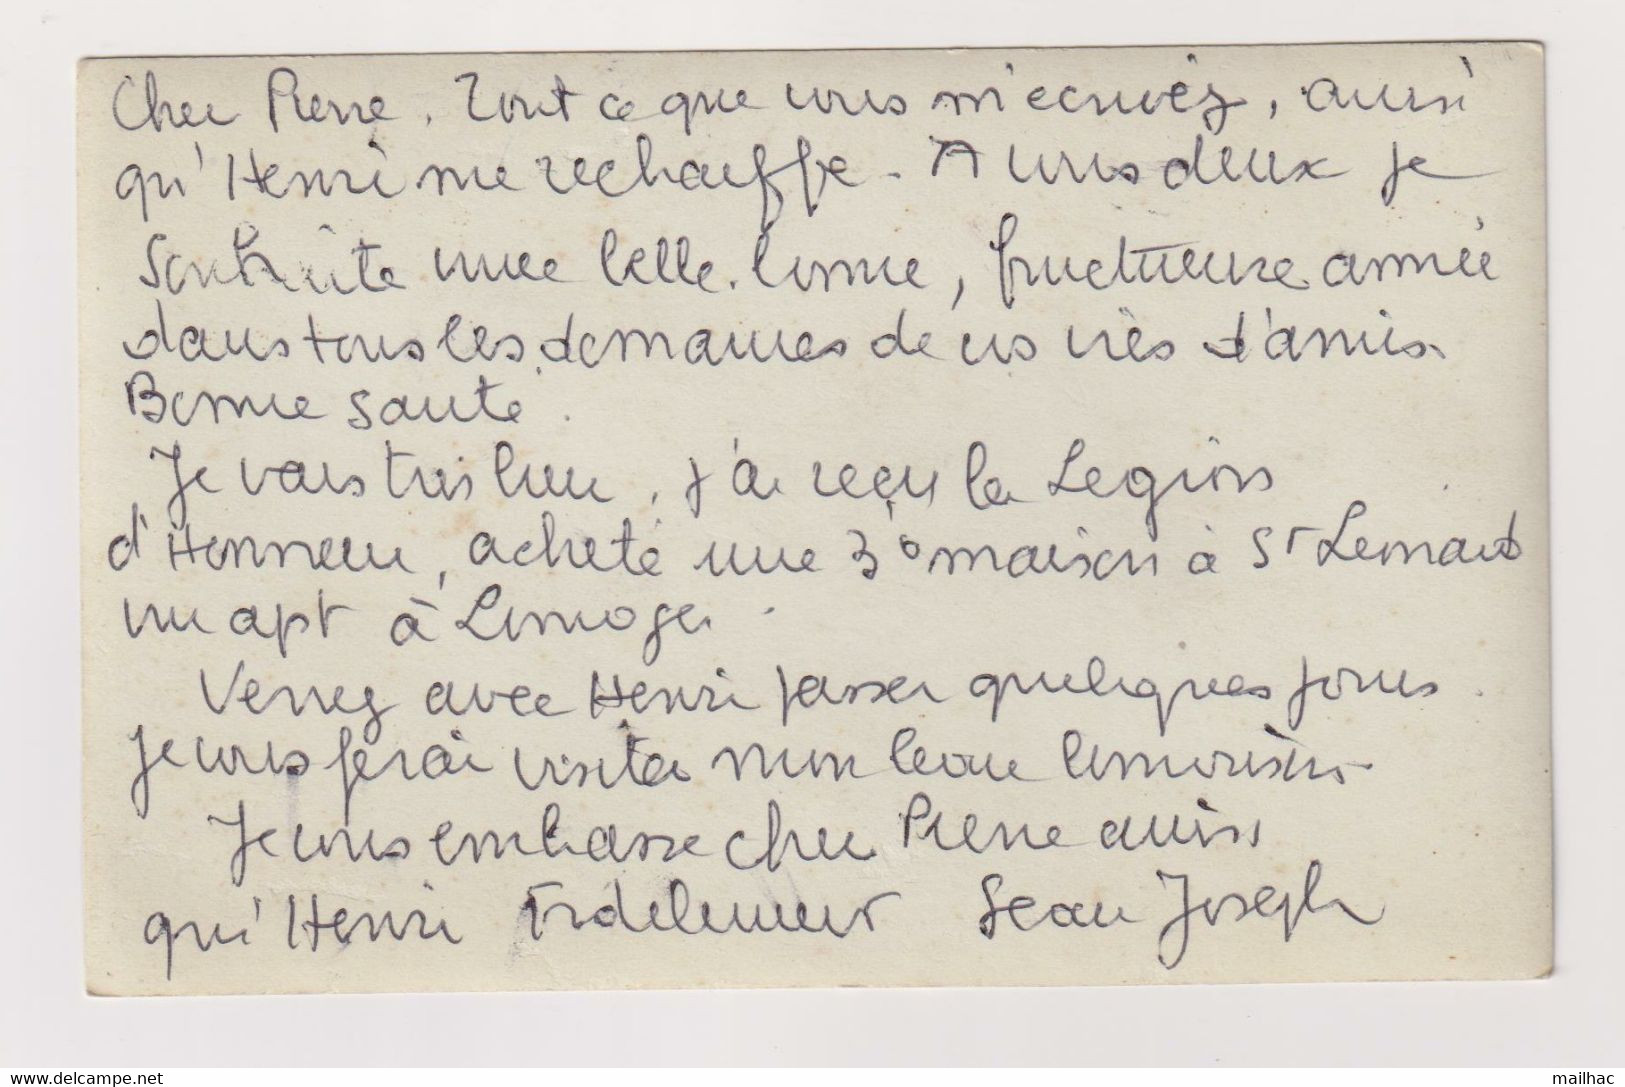 Cher Pierre. Tout ce que vous m'ecrivez, aussi
qu'Henri me rechauffe. A vous deux je
souhaite une belle. bonne, fructueuse année
dans tous les domaines de vos vies d'amis.
Bonne santé.
Je vais tres bien. j'ai reçu la Legion
d'Honneur, acheté une 3° maison à St Leonard
un apt à Limoges.
Venez avec Henri passer quelques jours.
Je vous ferai visiter mon beau limousin.
Je vous embrasse cher Pierre ainsi
qu'Henri Fidelement Jean Joseph
www.delcampe.net
mailhac